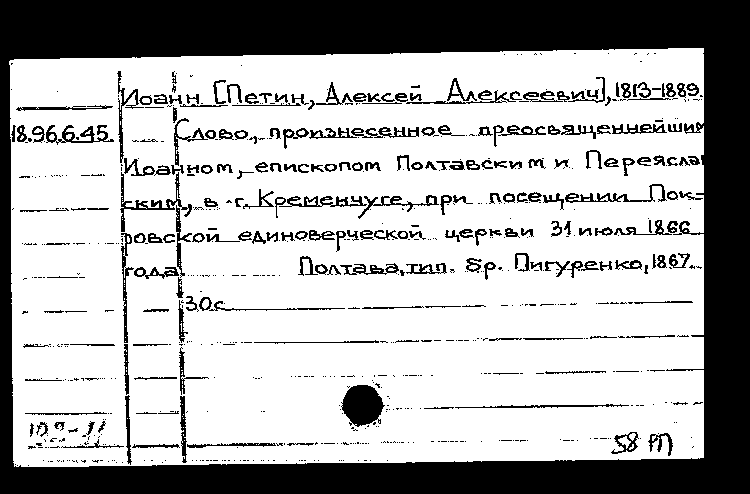 Иоанн [Петин, Алексей Алексеевич], 1813-1889.
18.96.6.45. Слово, произнесенное преосвященнейшим
Иоанном, епископом Полтавским и Переясла
ским, в г. Кременчуге, при посещении Пок-
ровской единоверческой церкви 31 июля 1866
года. Полтава, тип. бр. Пигуренко, 1867.
30с.
58 РП